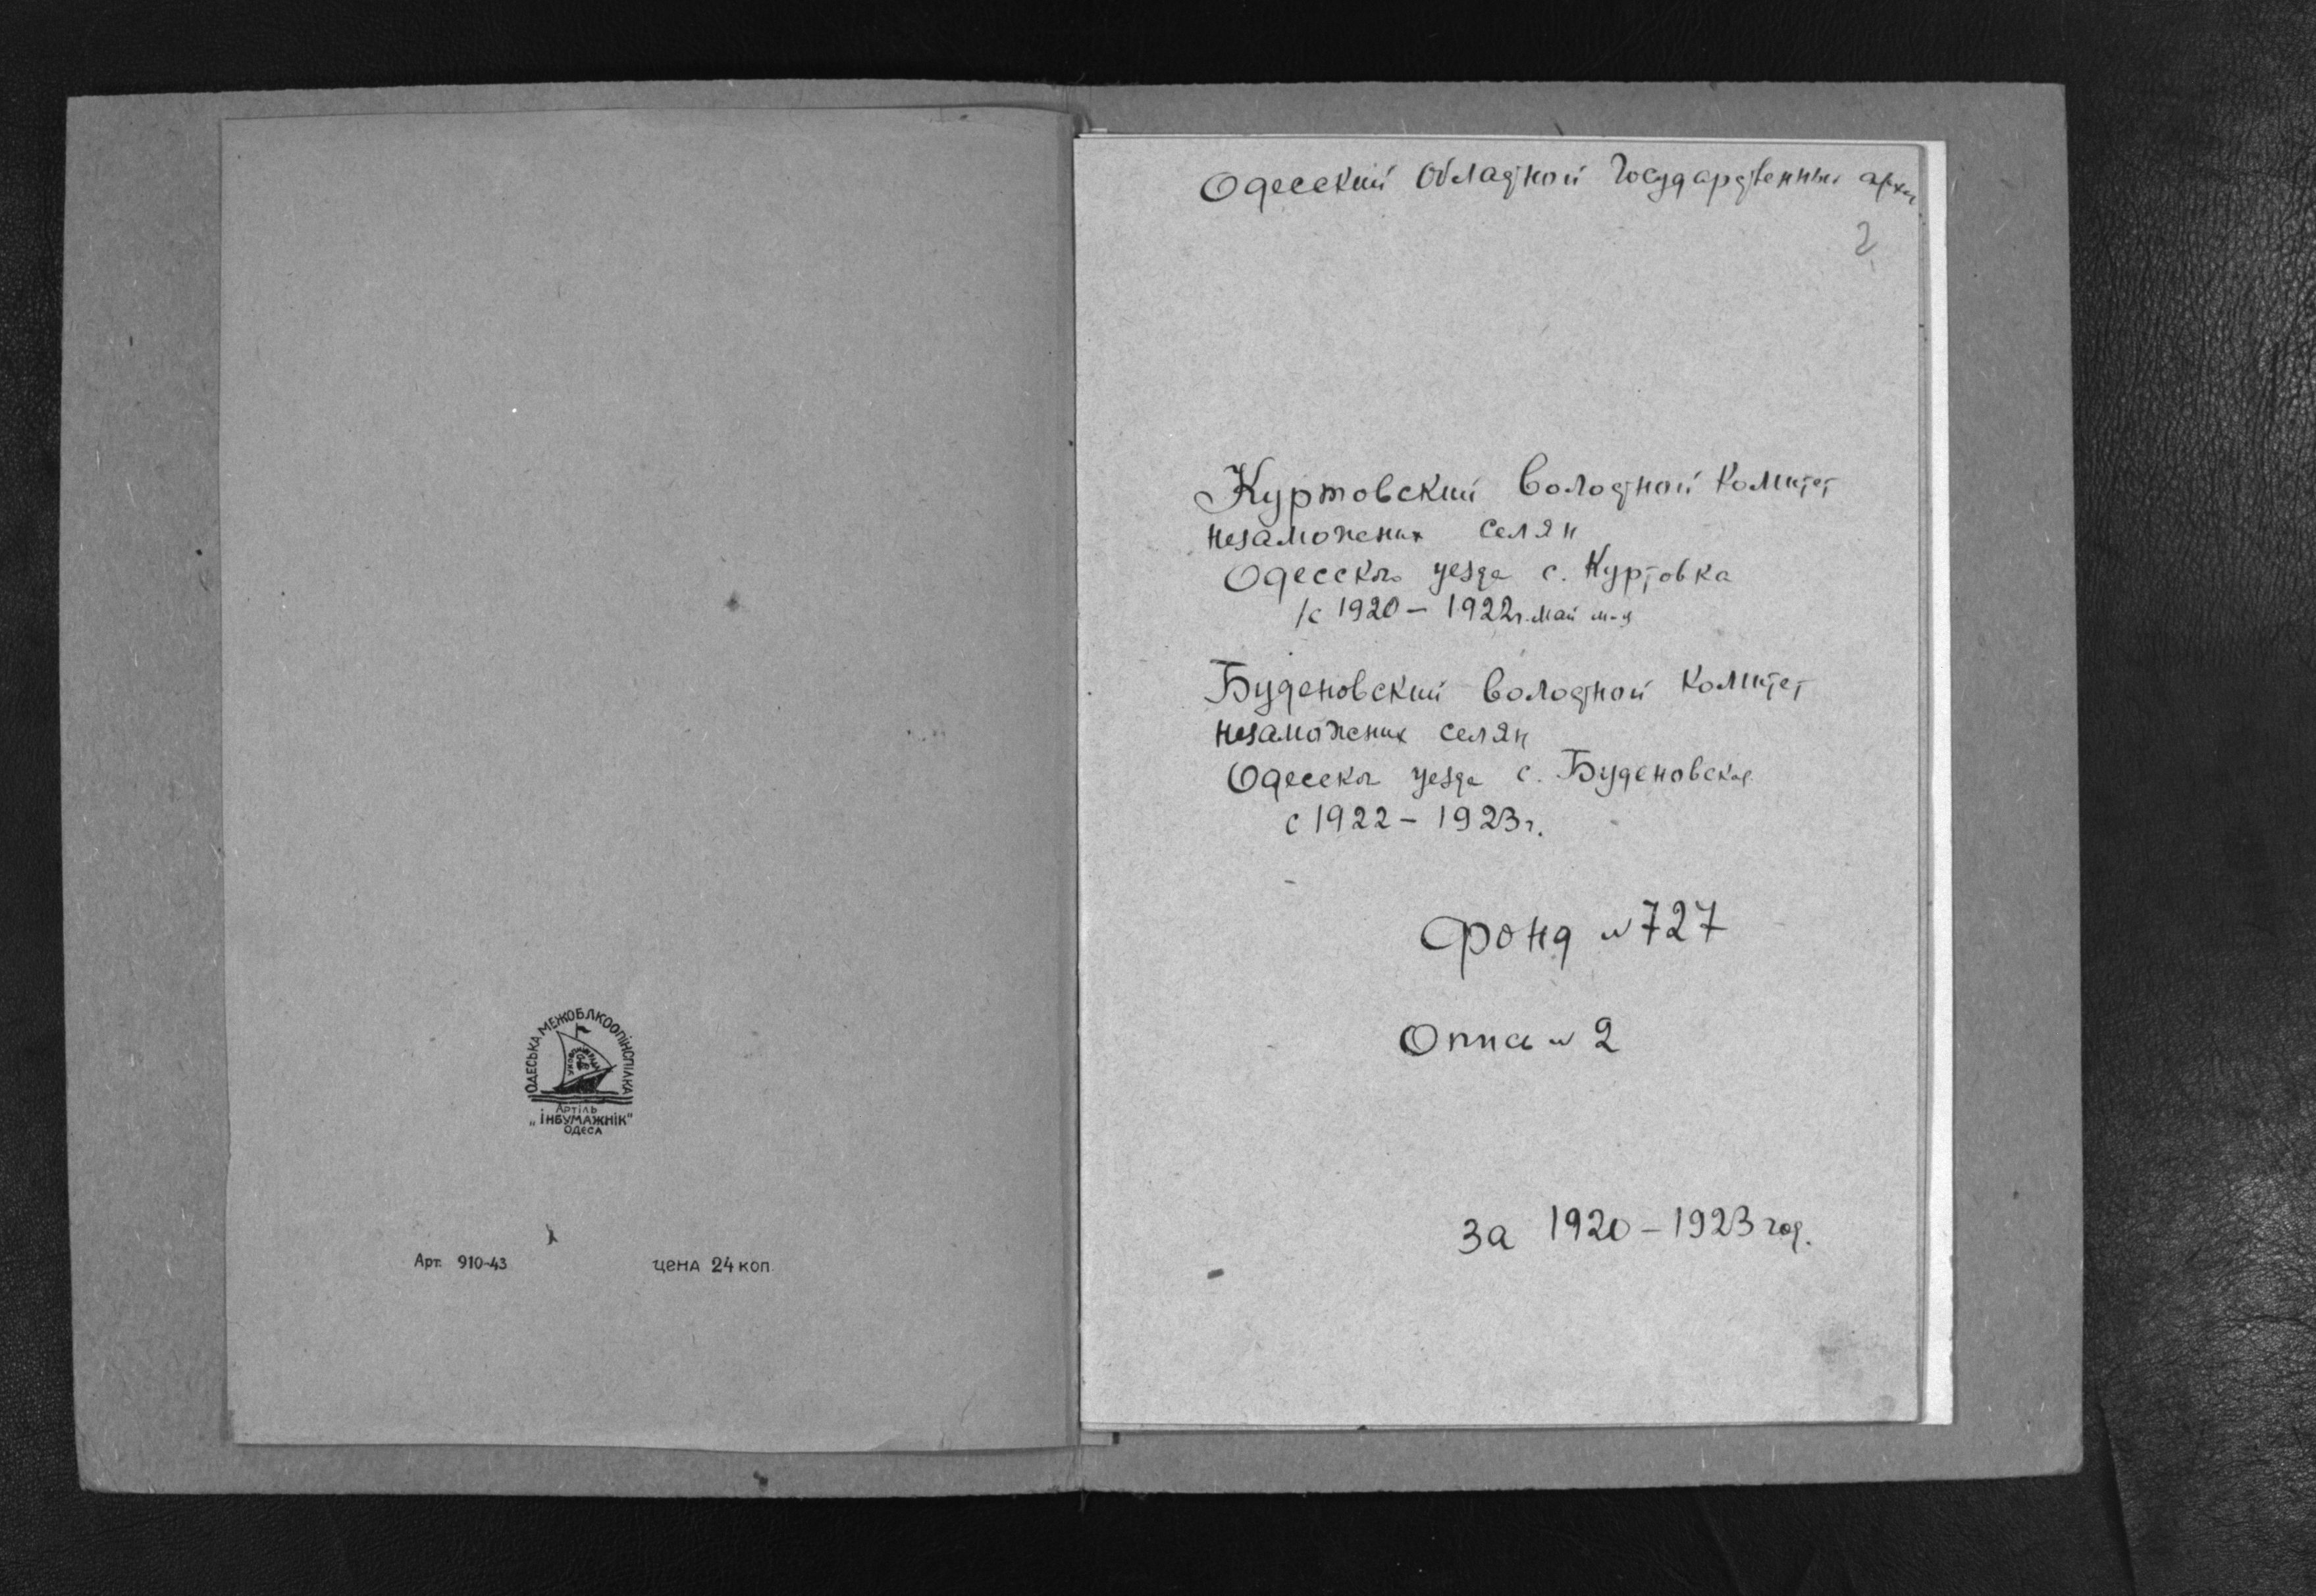 ОДЕСЬКА МЕЖОБЛКООПІНСПІЛКА
Артіль
„ІНБУМАЖНІК"
ОДЕСА
Арт. 910-43 цена 24 коп.
Одесский Областной Государственный архив
2
Куртовский Волостной Комитет
незаможних селян
Одесского уезда с. Куртовка
/с 1920 – 1922г. май м-ц
Буденовский Волостной Комитет
незаможних селян
Одесског уезда с. Буденовское
с 1922 – 1923г.
Фонд №727
Опись № 2
за 1920 – 1923 год.